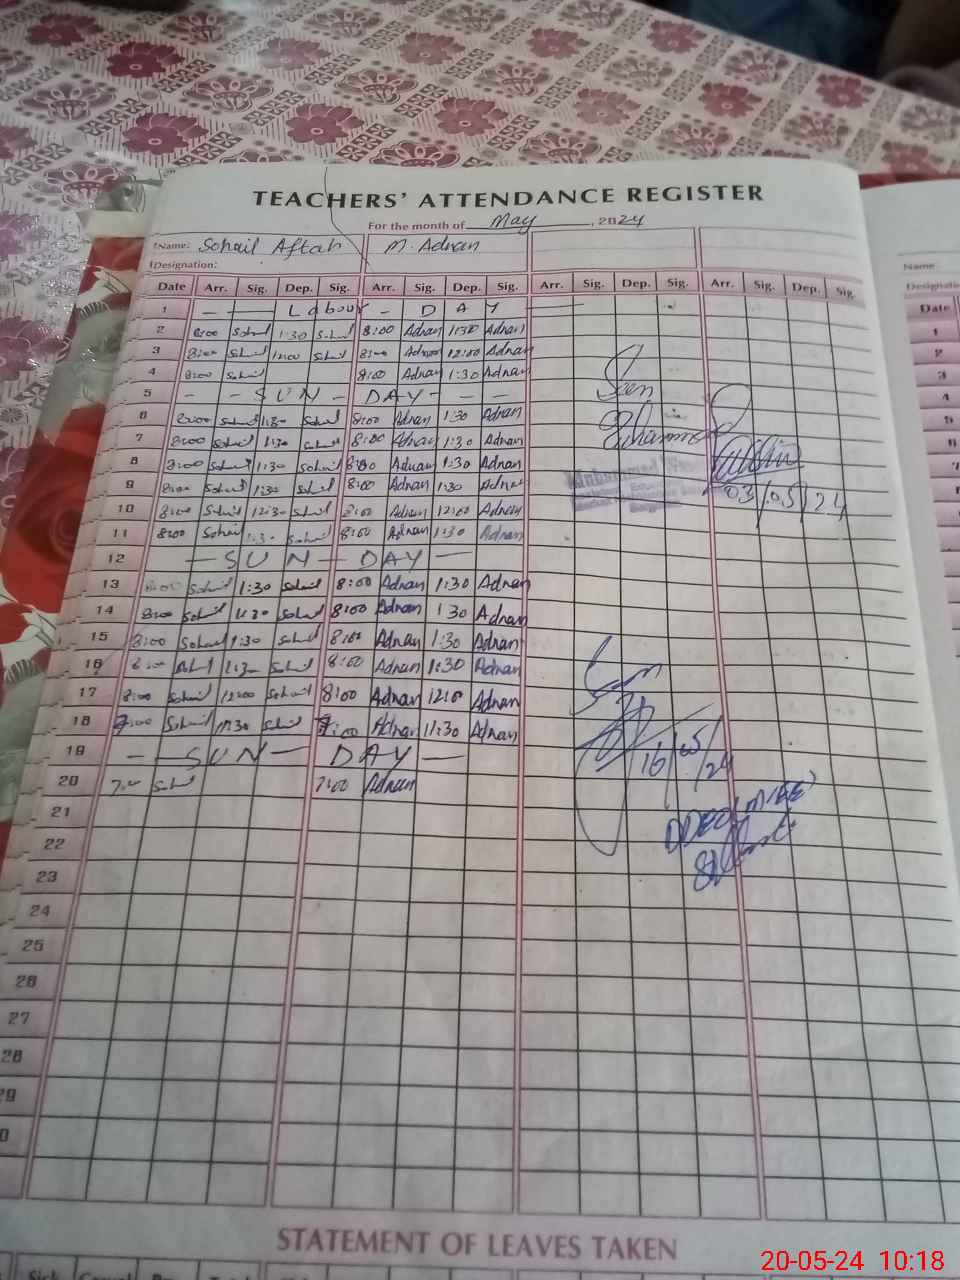 TEACHERS' ATTENDANCE REGISTER
For the month of May, 2024
Name: Sohail Aftab M. Adnan
Name:
Designation:
Date Arr. Sig. Dep. Sig. Arr. Sig. Dep. Sig. Arr. Sig. Dep. Sig. Arr. Sig. Dep. Sig.
Date
1 - Labour - DAY
2 8:00 Sohail 1:30 Sohail 8:00 Adnan 1:30 Adnan
3 8:00 Sohail 12:00 Sohail 8:00 Adnan 12:00 Adnan
4 8:00 Sohail 8:00 Adnan 1:30 Adnan
5 - - SUN - DAY - -
Seen
6 8:00 Sohail 1:30 Sohail 8:00 Adnan 1:30 Adnan
7 8:00 Sohail 1:30 Sohail 8:00 Adnan 1:30 Adnan
Muhammad
8 8:00 Sohail 1:30 Sohail 8:00 Adnan 1:30 Adnan
9 8:00 Sohail 1:30 Sohail 8:00 Adnan 1:30 Adnan
03/05/24
10 8:00 Sohail 12:30 Sohail 8:00 Adnan 12:00 Adnan
11 8:00 Sohail 1:30 Sohail 8:00 Adnan 1:30 Adnan
12 - SUN - DAY -
13 8:00 Sohail 1:30 Sohail 8:00 Adnan 1:30 Adnan
14 8:00 Sohail 1:30 Sohail 8:00 Adnan 1 30 Adnan
15 8:00 Sohail 1:30 Sohail 8:00 Adnan 1:30 Adnan
16 8:00 Sohail 1:30 Sohail 8:00 Adnan 1:30 Adnan
Seen
17 8:00 Sohail 12:00 Sohail 8:00 Adnan 12:0 Adnan
18 7:00 Sohail 11:30 Sohail 7:00 Adnan 11:30 Adnan
16/05/24
19 - SUN - DAY -
20 7:00 Sohail 7:00 Adnan
21
22
23
24
25
26
27
28
29
STATEMENT OF LEAVES TAKEN
20-05-24 10:18